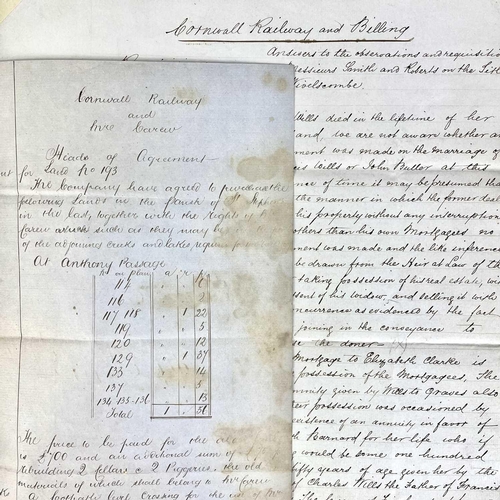 Cornwall Railway and Billing
Answers to the observations and requisition
Messieurs Smith and Roberts on the Title
Wivelscombe.
Wills died in the lifetime of her
and we are not aware whether an
ment was made on the marriage of
is Wills or John Buller at this
nce of time it may be presumed the
the manner in which the former deal
his property without any interruption
others than his own Mortgagees no
ment was made and the like inference
be drawn from the Heir at Law of th
taking possession of his real estate, wi
sent of his widow, and selling it with
ncurrence as evidenced by the fact
joining in the conveyance to
se the doner—
Mortgage to Elizabeth Clarke is
possession of the Mortgagees, The
nnuity given by Wills to Graves also
er possession was occasioned by
existence of an annuity in favor of
h Barnard for her life who if
would be some one hundred
fifty years of age given her by the
of Charles Wills the Father of Francis
Cornwall Railway
and
Mrs Carew
Heads of Agreement—
for Land No 193
The Company have agreed to purchase the
following lands in the Parish of
in the last, together with the Rights of
Carew such as they may be
of the adjoining creeks and lakes,
At Anthony Passage
No on plan a r p
114 " " 6
116 " " 2
117 118 " 1 22
119 " " 5
120 " " 12
129 " 1 37
133 " " 14
137 " " 5
134-135-136 " " 13
Total 1 " 31
The price to be paid for the
is £700 and an additional sum of
rebuilding 2 pillars & 2 Piggeries, the old
materials of which shall belong to Mrs Carew
A footpath Level Crossing for the use of Mrs